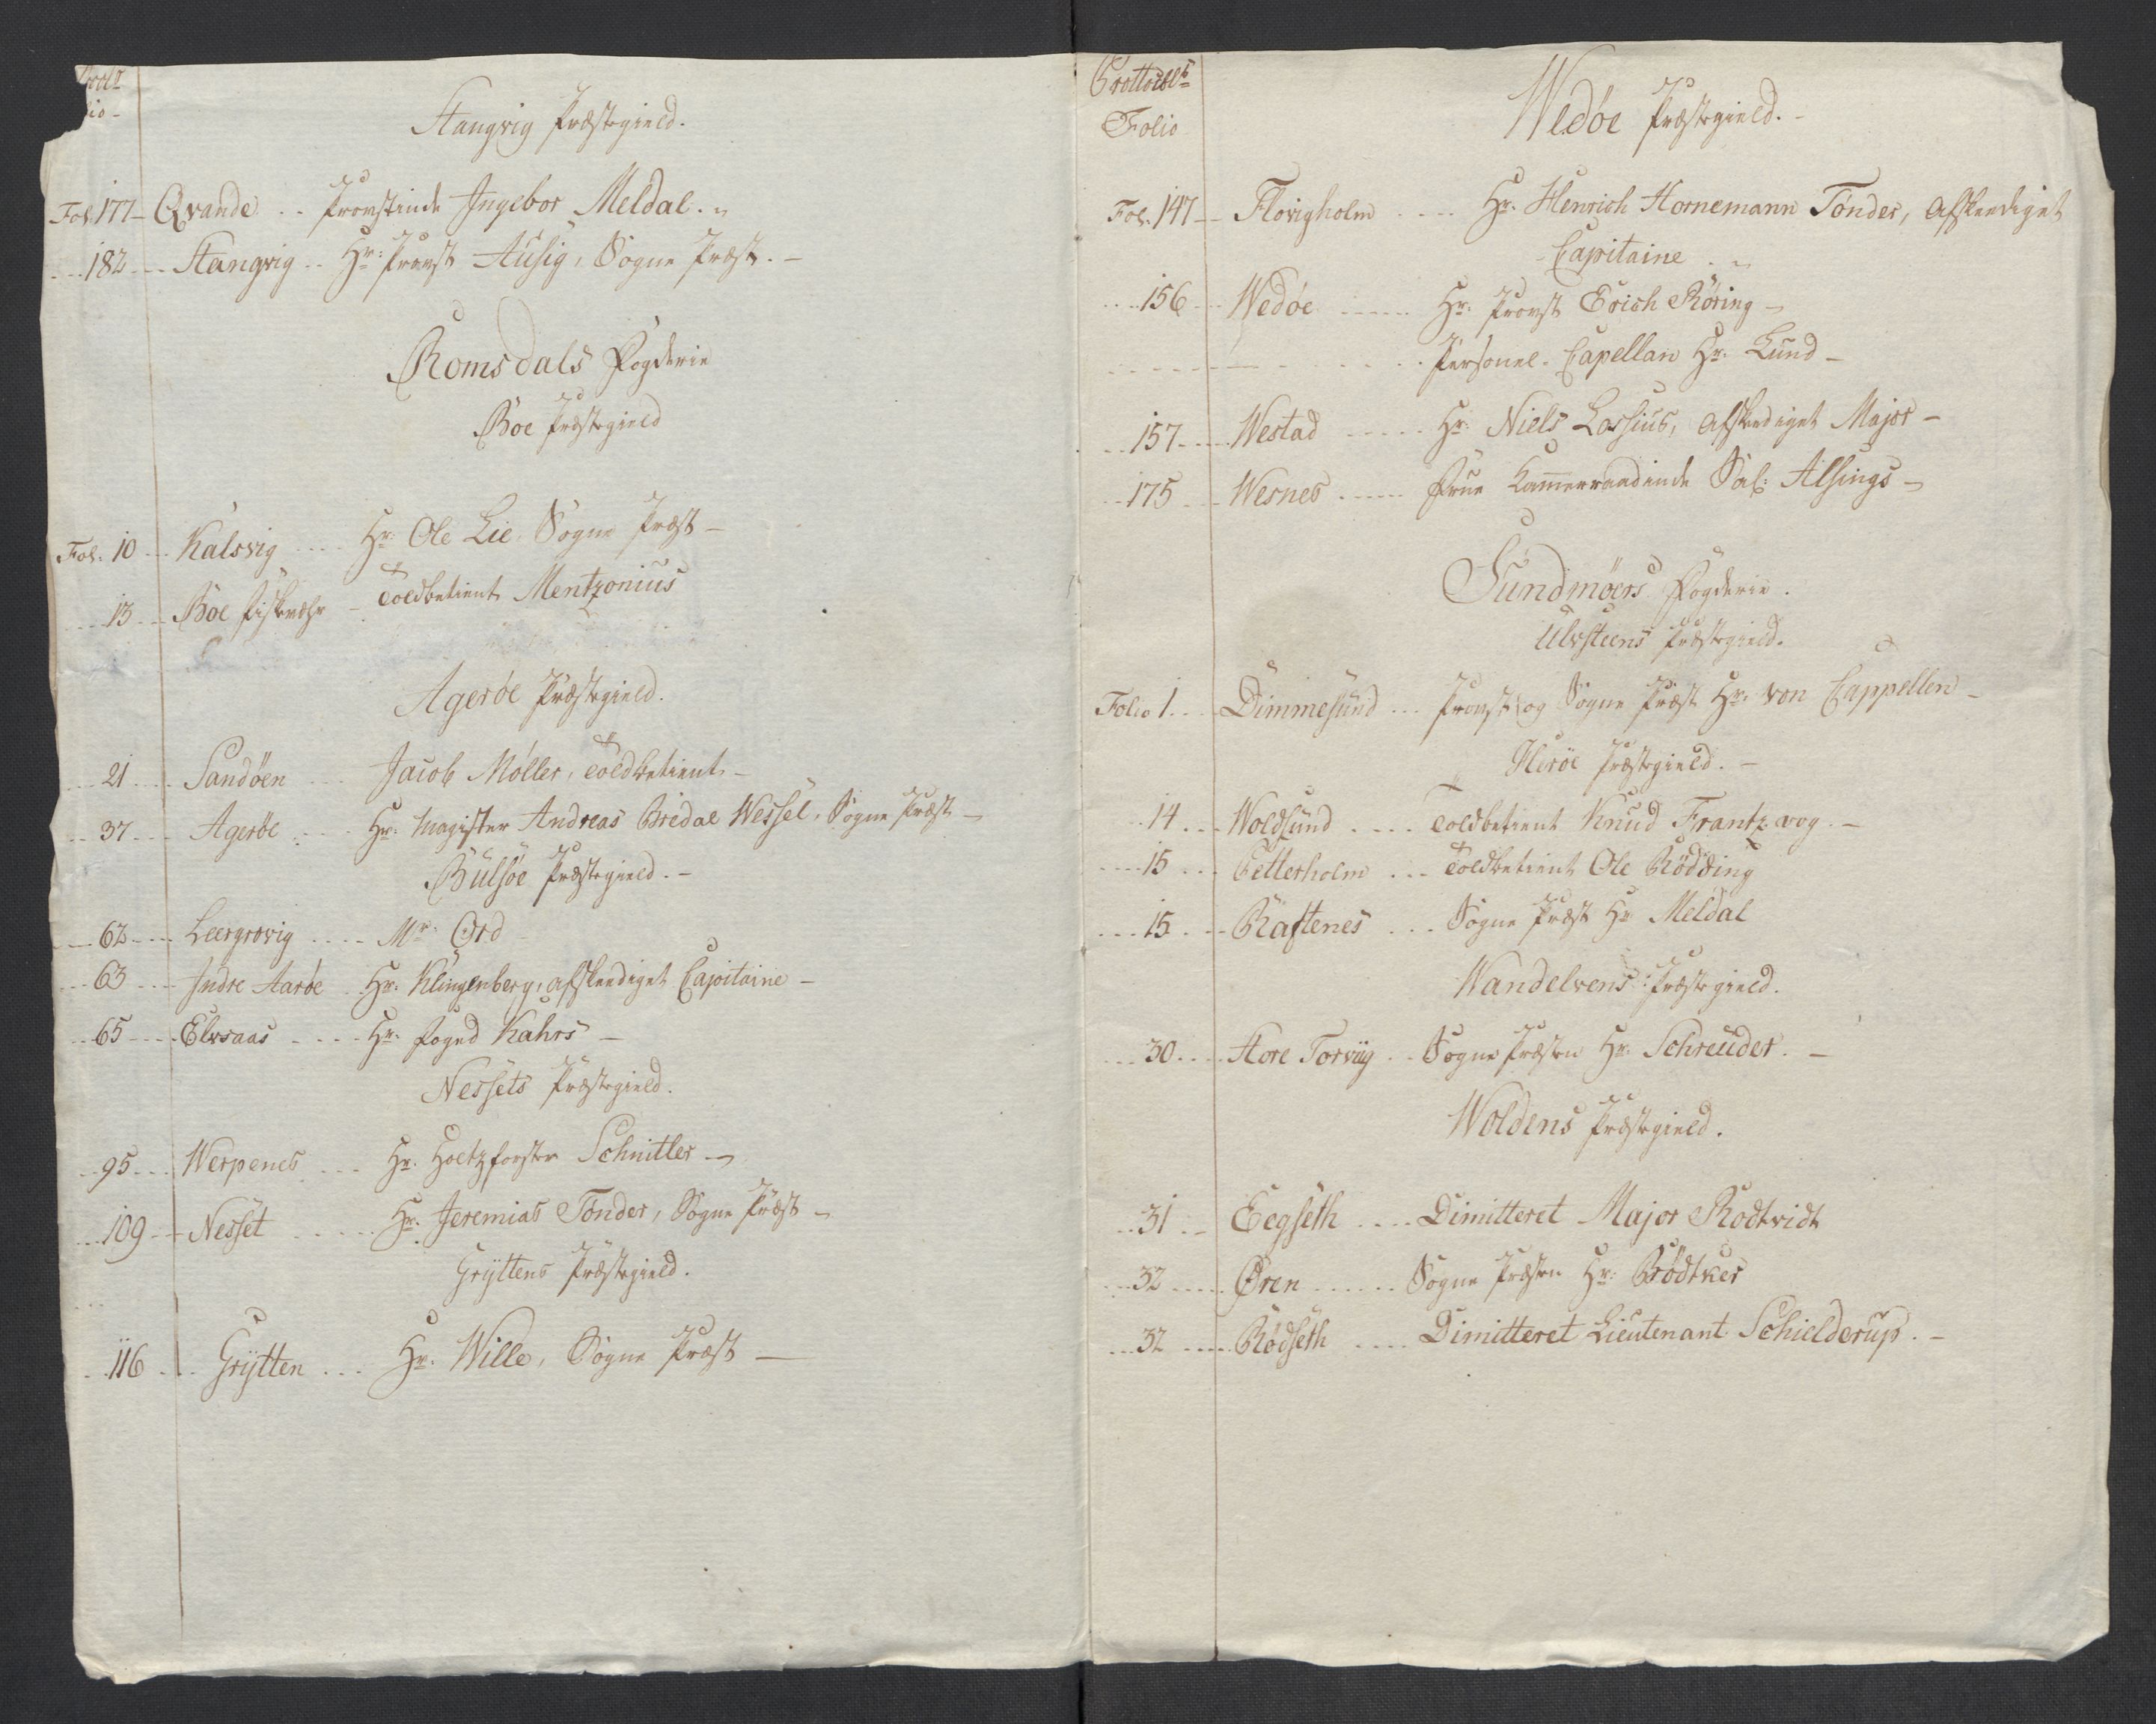 Stangvig Præstegield.
Fol. 177 Qvande .. Provstinde Ingebor Meldal.
182 Stangvig .. Hr: Provst Ausig, Sogne Præst.
Romsdals Fogderie
Boe Præstegield
Fol. 10 Kalsvig Hr: Ole Lie Sogne Præst
13 Boe Fiskevehr Toldbetient Mentzonius
Agerøe Præstegield.
21 Sandøen Jacob Møller, Toldbetient
37 Agerøe Hr: Magister Andreas Bredal Wessel, Sogne Præst
Bulsøe Præstegield.
62 Leergrovig Mr: Ord
63 Indre Aarøe Hr: Klingenberg, afskeediget Capitaine
65 Elvsaas Hr: Foged Kahrs
Nessets Præstegield.
95 Werpenes Hr: Holtzforster Schnitler
109 Nesset Hr: Jeremias Tønder, Sogne Præst
Gryttens Præstegield.
116 Grytten Hr: Wille, Sogne Præst
Folio
Wedøe Præstegield.
Fol. 147 Flovigholm Hr: Henrich Hornemann Tønder, Afskeediget
Capitaine
156 Wedøe Hr: Provst Erich Røring
Personel Capellan Hr: Lund
157 Westad Hr: Niels Lossius, Afskediget Major
175 Wesnes Frue Kammerraadinde Sal: Alsings
Sundmøers Fogderie.
Ulvsteens Præstegield.
Folio 1. Dimmesund Provst og Sogne Præst Hr: von Cappellen
Herøe Præstegield.
14 Woldsund Toldbetient Knud Frantzvog
15 Petterholm Toldbetient Ole Rødding
15 Raftenes Sogne Præst Hr Meldal
Wandelvens Præstegield.
30 Store Torviig Sogne Præsten Hr: Schreuder.
Woldens Præstegield.
31 Eegseth Dimitteret Major Rodtvidt
32 Øren Sogne Præsten Hr: Brødtker
32 Rødseth Dimitteret Lieutenant Schielderup.